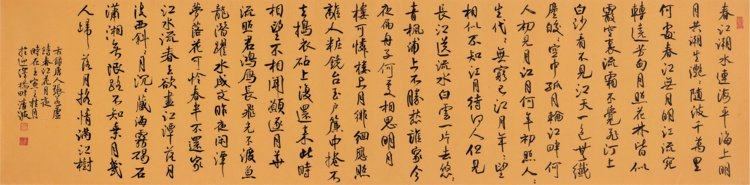 春江潮水連海平海上明
月共潮生灩灩隨波千萬里
何處春江無月明江流宛
轉遶芳甸月照花林皆似
霰空裏流霜不覺飛汀上
白沙看不見江天一色無纖
塵皎皎空中孤月輪江畔何
人初見月江月何年初照人人
生代代無窮已江月年年望
相似不知江月待何人但見
長江送流水白雲一片去悠悠
青楓浦上不勝愁誰家今
夜扁舟子何處相思明月
樓可憐樓上月徘徊應照
離人粧鏡台玉戶簾中捲不
去搗衣砧上拂還來此時
相望不相聞願逐月華
流照君鴻雁長飛光不度魚
龍潛躍水成文昨夜閒潭
夢落花可憐春半不還家
江水流春去欲盡江潭落月
復西斜斜月沉沉藏海霧碣石
瀟湘無限路不知乘月幾
人歸落月搖情滿江樹
右錄唐人張若虛
詩春江花月夜
時在壬寅桂月